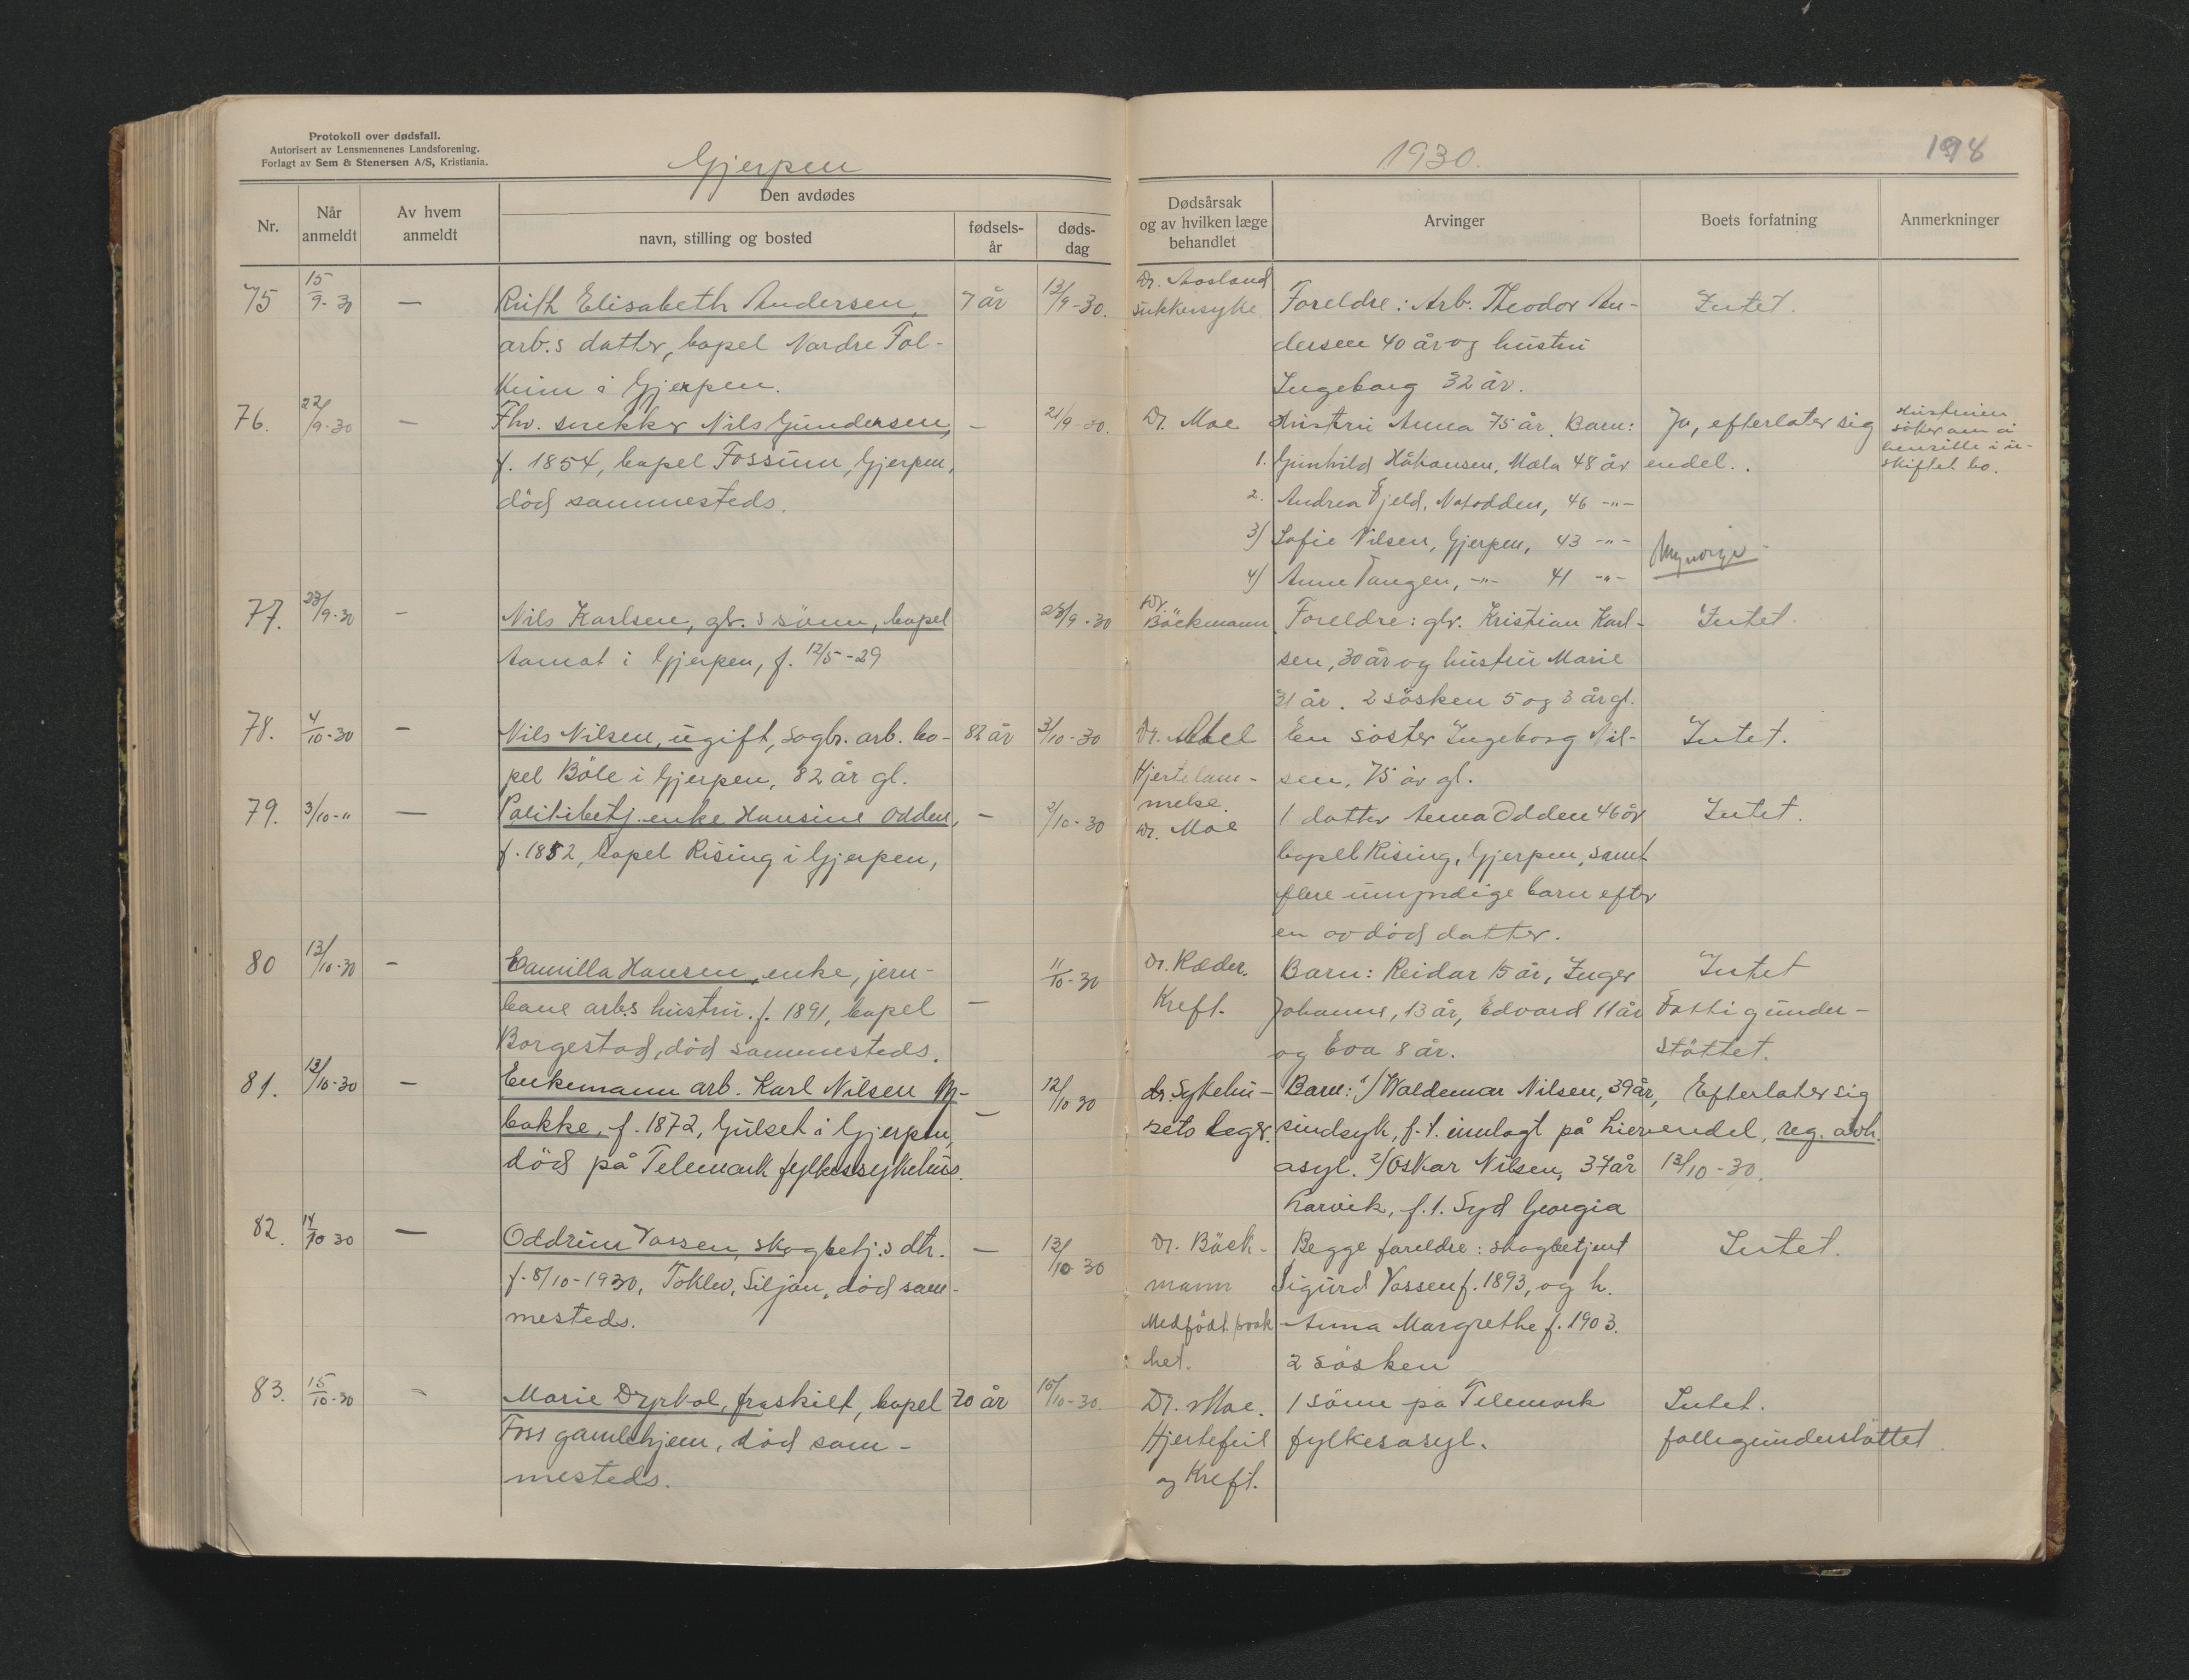 Protokoll over dødsfall.
Autorisert av Lensmennenes Landsforening.
Forlagt av Sem & Stenersen A/S, Kristiania.
Gjerpen
1930.
198
Nr.
Når anmeldt
Av hvem anmeldt
Den avdødes
navn, stilling og bosted
fødsels-år
døds-dag
Dødsårsak og av hvilken læge behandlet
Arvinger
Boets forfatning
Anmerkninger
75 15/9-30 — Ruth Elisabeth Andersen, 7 år 13/9-30. Dr. Aasland Foreldre: Arb. Theodor An- Intet.
arb.s datter, bopel Nordre Fol- sukkersyke dersen 40 år og hustru
kum i Gjerpen. Ingeborg 32 år.
76. 22/9-30 — Fhv. snekker Nils Gundersen, — 21/9-30. Dr. Moe Hustru Anna 75 år. Barn: Ja, efterlater sig Hustruen
f. 1854, bopel Fossum, Gjerpen, 1. Gunhild Håhansen, Mæla 48 år endel. søker om å
død sammesteds. 2. Andrea Fjeld, Notodden, 46 -"- hensitte i u-
3) Sofie Nilsen, Gjerpen, 43 -"- skiftet bo.
4) Anne Tangen, -"- 41 -"-
77. 23/9-30 — Nils Karlsen, gbr.s sønn, bopel 23/9-30 Dr. Böckmann Foreldre: gbr. Kristian Karl- Intet.
Aamot i Gjerpen, f. 12/5-29 sen, 30 år og hustru Marie
31 år. 2 søsken 5 og 3 år gl.
78. 4/10-30 — Nils Nilsen, ugift, sagbr. arb. bo- 82 år 3/10-30 Dr. Abel En søster Ingeborg Nil- Intet.
pel Böle i Gjerpen, 82 år gl. Hjertelam- sen, 75 år gl.
melse.
79. 3/10-" — Politibetj. enke Hansine Odden, — 3/10-30 Dr. Moe 1 datter Anna Odden 46 år Intet.
f. 1852, bopel Rising i Gjerpen, bopel Rising, Gjerpen, samt
flere umyndige barn efter
en avdöd datter.
80 13/10-30 — Camilla Hansen, enke, jern- 11/10-30 Dr. Ræder. Barn: Reidar 15 år, Inger Intet
bane arb.s hustru. f. 1891, bopel — Kreft. Johanne, 13 år, Edvard 11 år Fattigunder-
Borgestad, död sammesteds. og Eva 8 år. støttet.
81. 13/10-30 — Enkemann arb. Karl Nilsen My- 12/10 30 dr. Sykehu- Barn: 1) Waldemar Nilsen, 39 år, Efterlater sig
bakke, f. 1872, Gulset i Gjerpen, — sets leger. sindsyk, f. t. innlagt på Lier endel, reg. avh.
död på Telemark fylkessykehus. asyl. 2) Oskar Nilsen, 37 år 13/10-30.
Larvik, f. t. Syd Georgia
82. 14/10 30 — Oddrun Vassen, skogbetj.s dtr. — 13/10 30 Dr. Böck- Begge foreldre: skogbetjent Intet.
f. 8/10-1930, Siljan, död sam- mann Sigurd Vassen f. 1893, og h.
mesteds. Medfödt svak- Anna Margrethe f. 1903.
het. 2 søsken
83. 15/10-30 — Marie Dyrkol, fraskilt, bopel 70 år 15/10-30. Dr. Moe. 1 sönn på Telemark Intet.
Foss gamlehjem, död sam- Hjertefeil fylkesasyl. fattigunderstøttet.
mesteds. og Kreft.